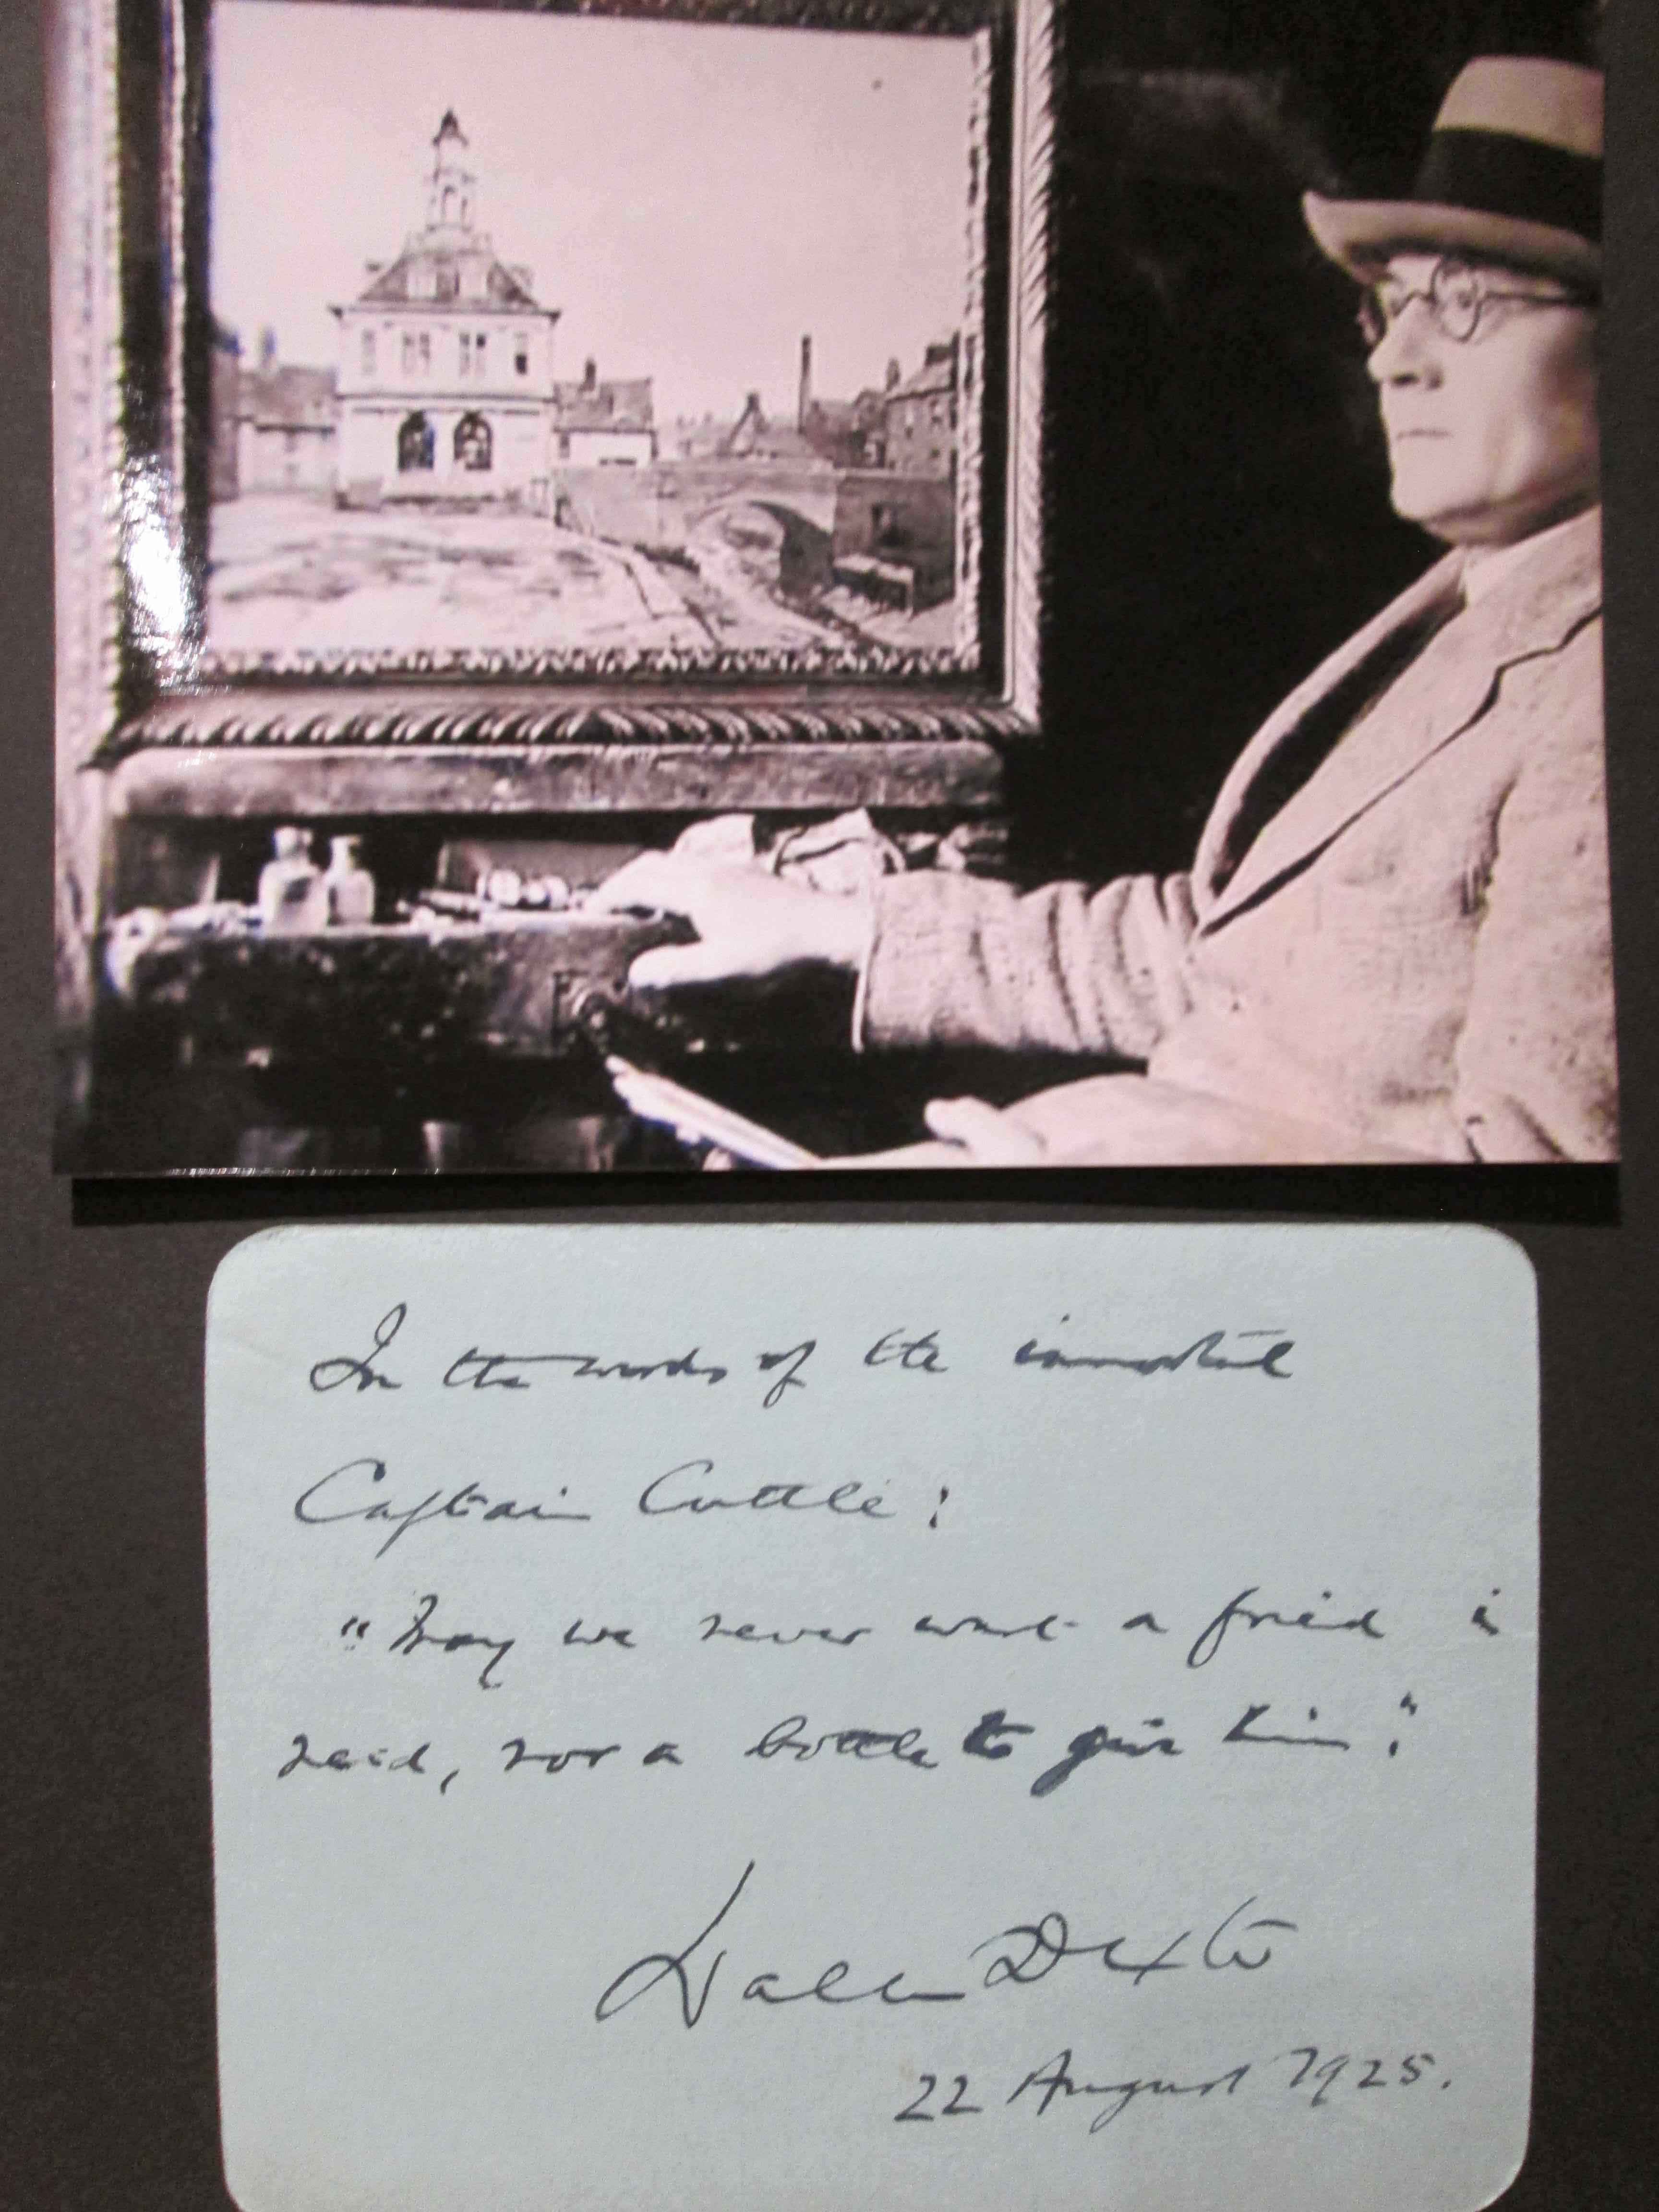 In the words of the immortal
Captain Cuttle:
"May we never want a friend in
need, nor a bottle to give him".
Walter Dexter
22 August 1925.